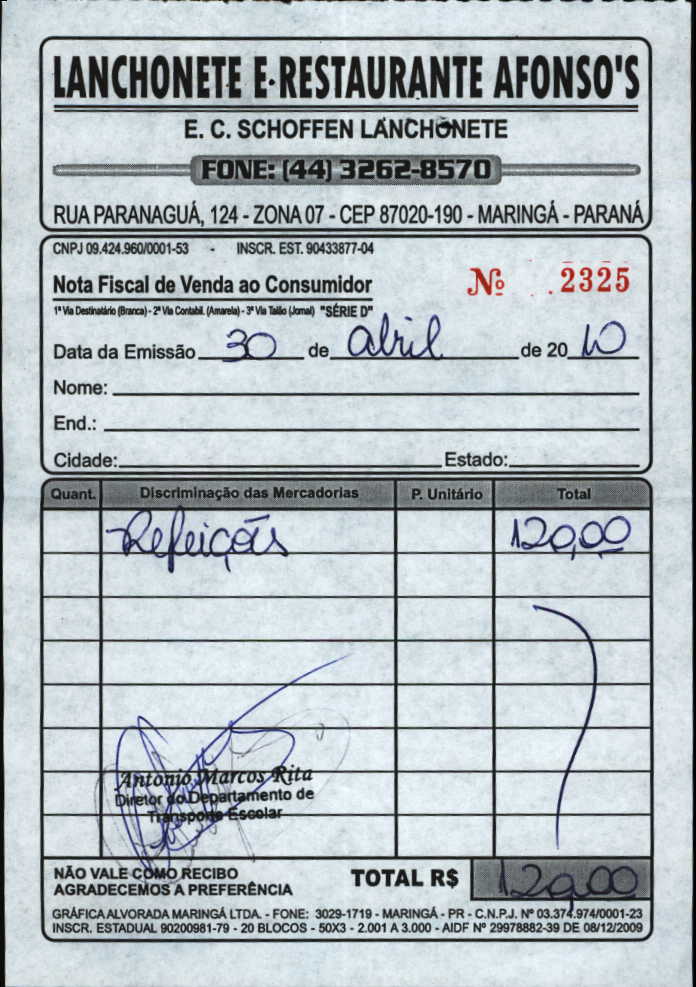 LANCHONETE E RESTAURANTE AFONSO'S
E. C. SCHOFFEN LANCHONETE
FONE: (44) 3262-8570
RUA PARANAGUÁ, 124 - ZONA 07 - CEP 87020-190 - MARINGÁ - PARANÁ
CNPJ 09.424.960/0001-53 - INSCR. EST. 90433877-04
Nota Fiscal de Venda ao Consumidor Nº 2325
1ª Via Destinatário (Branca) - 2ª Via Contabil. (Amarela) - 3ª Via Talão (Jornal) "SÉRIE D"
Data da Emissão 30 de abril de 2010
Nome:
End.:
Cidade: Estado:
Quant. Discriminação das Mercadorias P. Unitário Total
Refeições 120,00
Antonio Marcos Rita
Diretor do Departamento de
Transporte Escolar
NÃO VALE COMO RECIBO
AGRADECEMOS A PREFERÊNCIA
TOTAL R$ 120,00
GRÁFICA ALVORADA MARINGÁ LTDA. - FONE: 3029-1719 - MARINGÁ - PR - C.N.P.J. Nº 03.374.974/0001-23
INSCR. ESTADUAL 90200981-79 - 20 BLOCOS - 50X3 - 2.001 A 3.000 - AIDF Nº 29978882-39 DE 08/12/2009